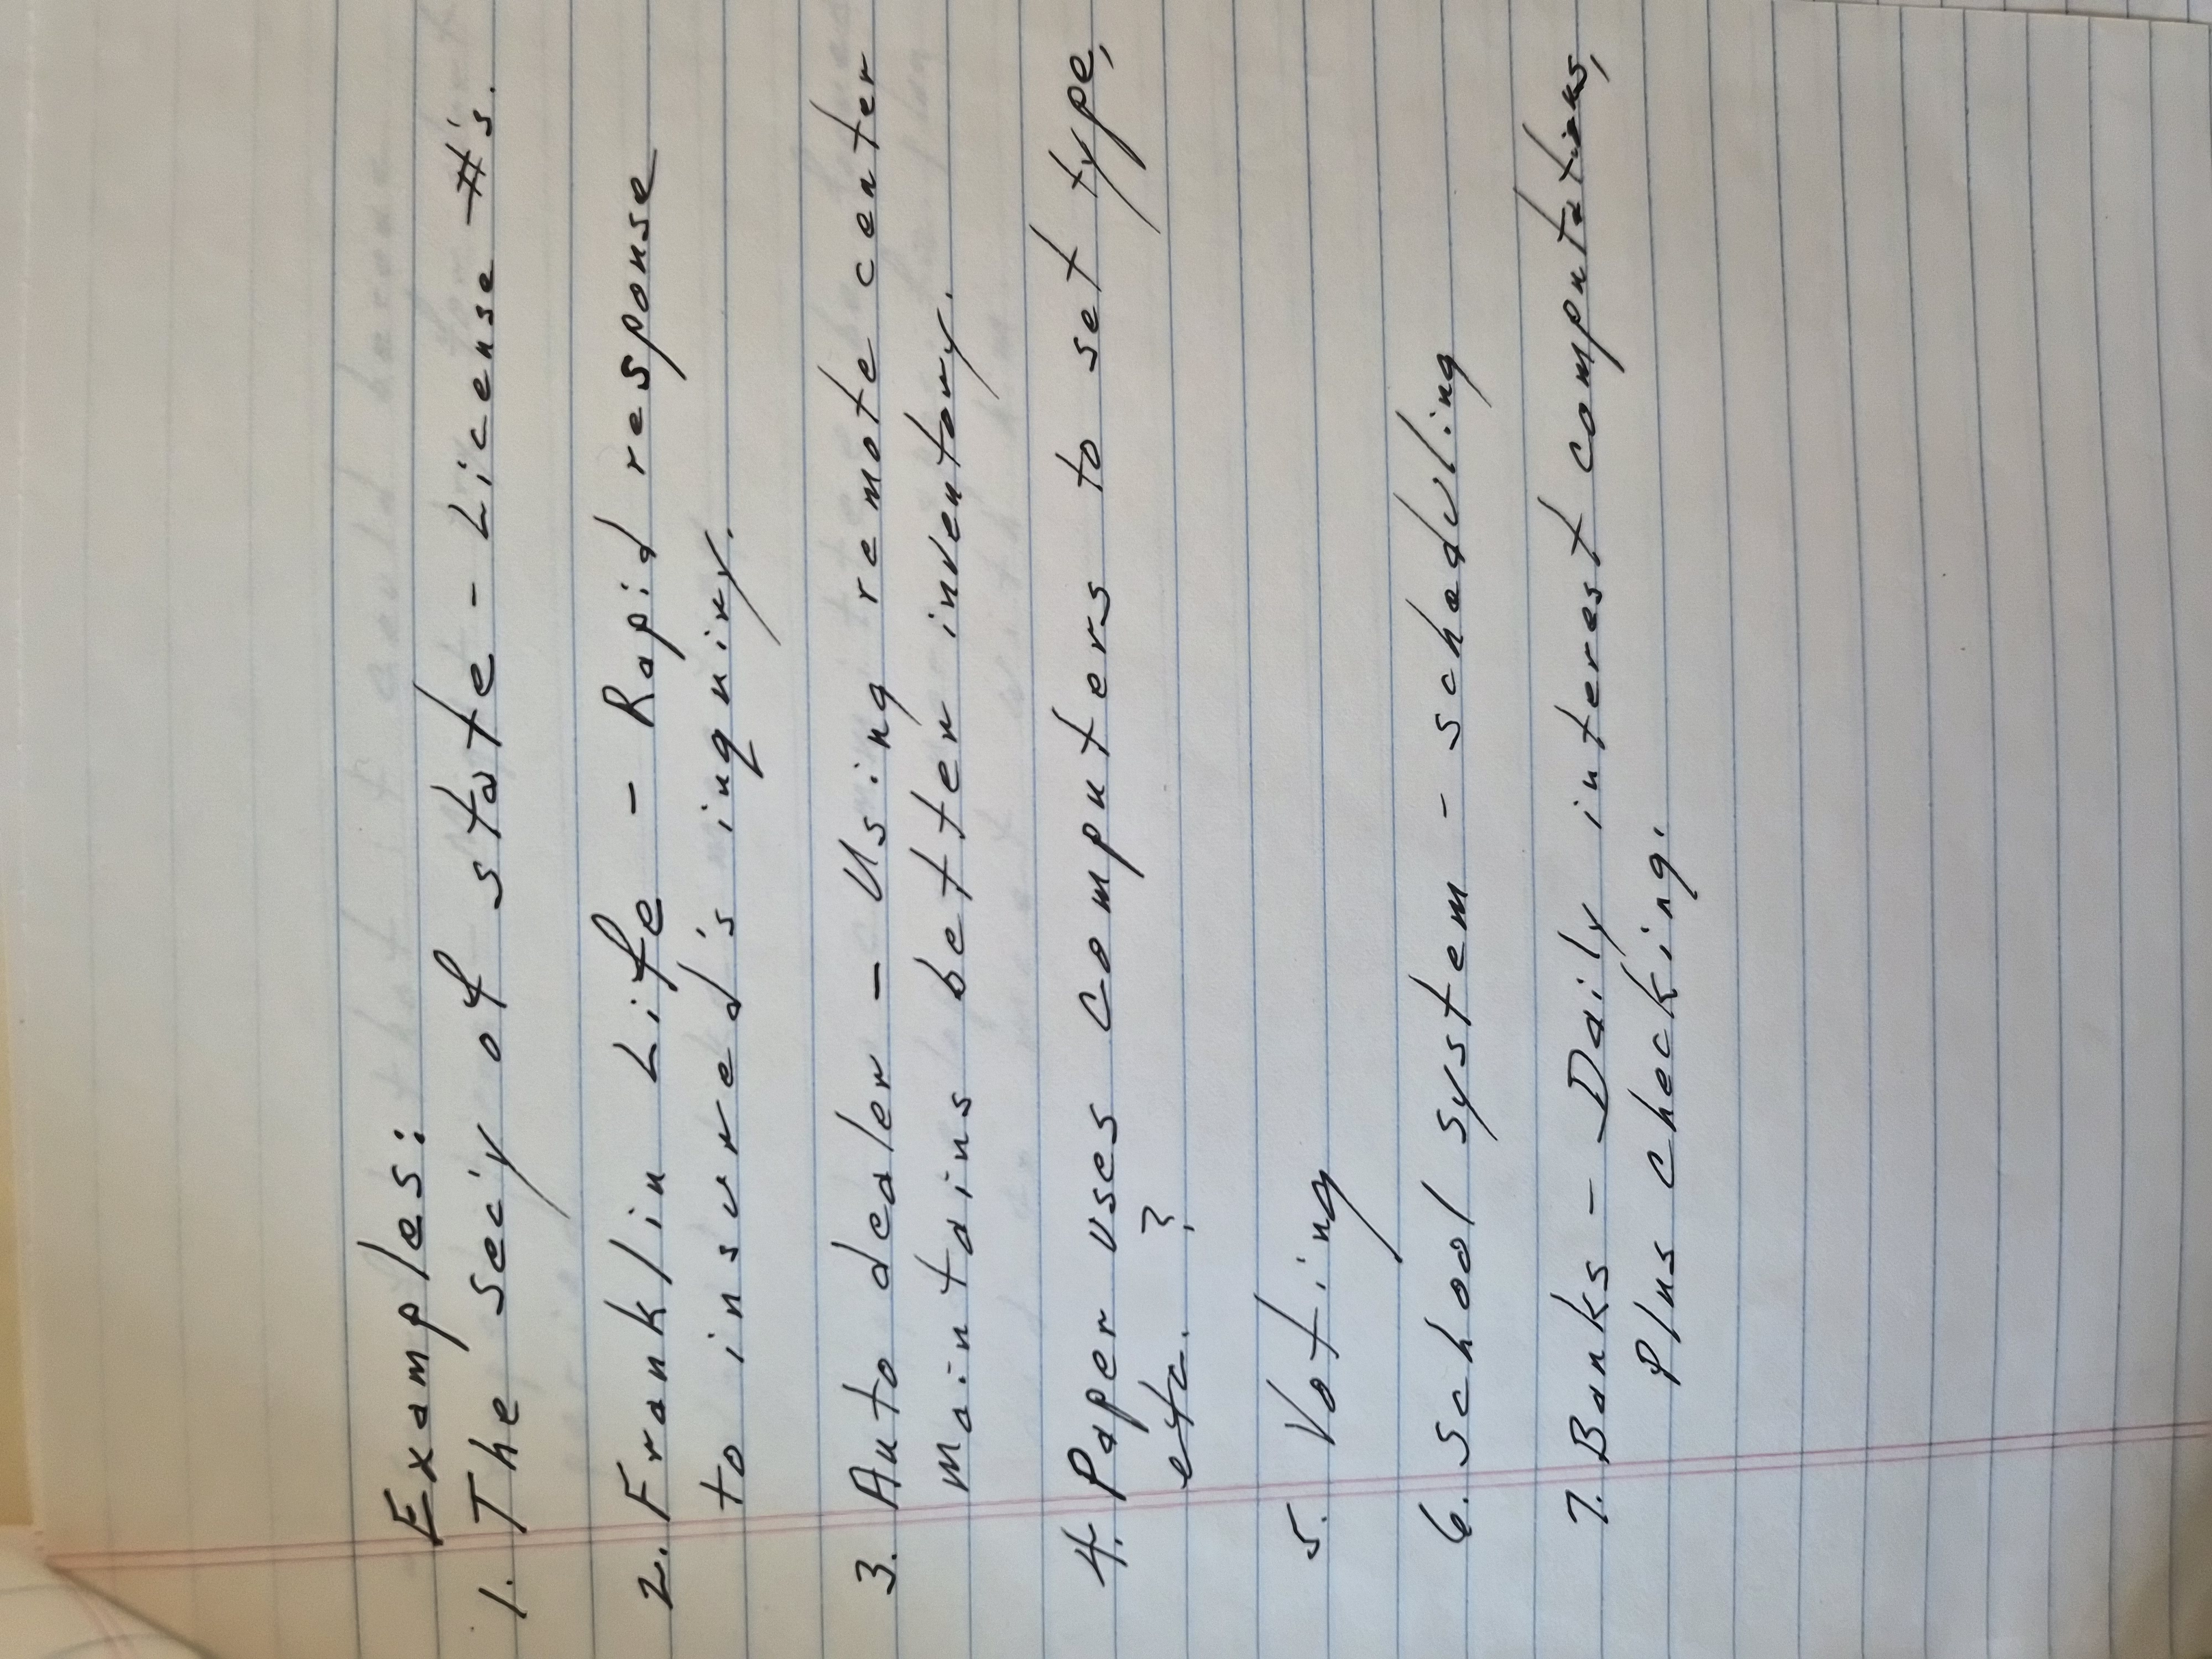 Examples:
1. The sec'y of state - License #'s.
2. Franklin Life - Rapid response
to insured's inquiry.
3. Auto dealer - Using remote center
maintains better inventory.
4. Paper uses computers to set type,
etc. ?
5. Voting
6. School system - scheduling
7. Banks - Daily interest computations,
Plus checking.